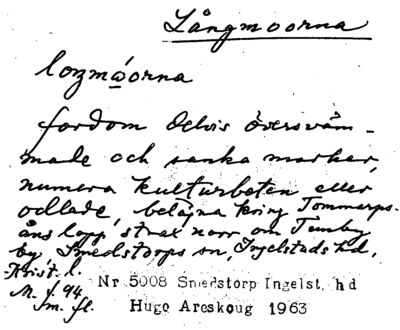 Långmoorna
fordom delvis översväm-
made och sanka marker,
numera kulturbeten eller
odlade, belägna kring Tommarps-
åns lopp strax norr om Tunby
by, Smedstorps sn, Ingelstads hd,
Krist. l.
M. f. 94,
fm. fl.
Nr 5008 Smedstorp Ingelst. hd
Hugo Areskoug 1963